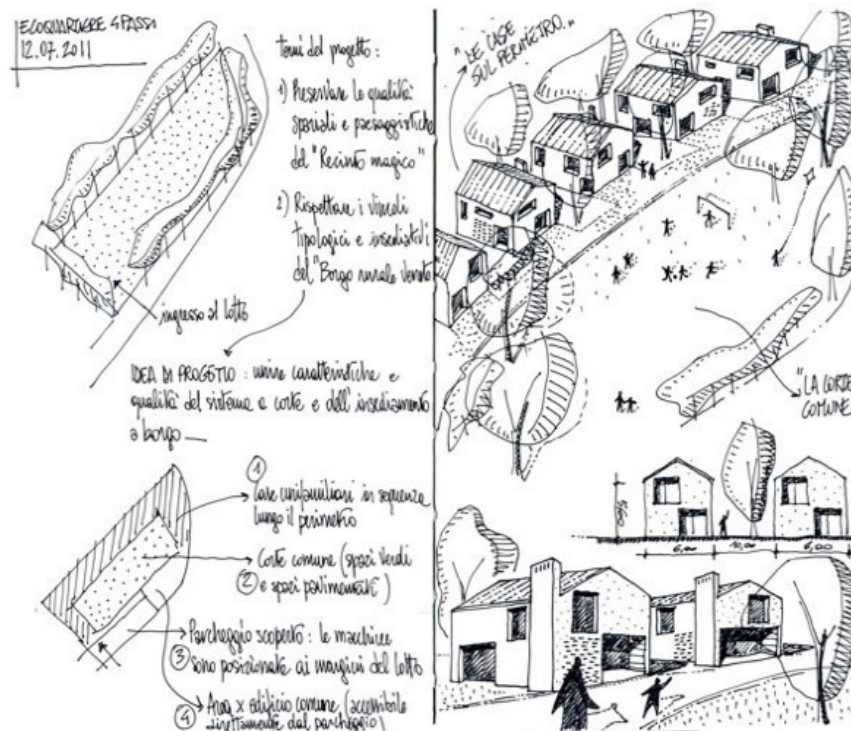 ECOQUARTIERE 4 PASSI
12.07.2011
temi del progetto:
1) Preservare le qualità
spaziali e paesaggistiche
del "Recinto magico"
2) Rispettare i vincoli
tipologici e insediativi
del "Borgo rurale veneto
ingresso al lotto
IDEA DI PROGETTO: unire caratteristiche e
qualità del sistema a corte e dell'insediamento
a borgo
1
Case unifamiliari in sequenza
lungo il perimetro
Corte comune (spazi verdi
2 e spazi pavimentati)
Parcheggio scoperto: le macchine
3 sono posizionate ai margini del lotto
4 Area x edificio comune (accessibile
direttamente dal parcheggio)
"LE CASE
SUL PERIMETRO."
"LA CORTE
COMUNE"
6,00 10,00 6,00